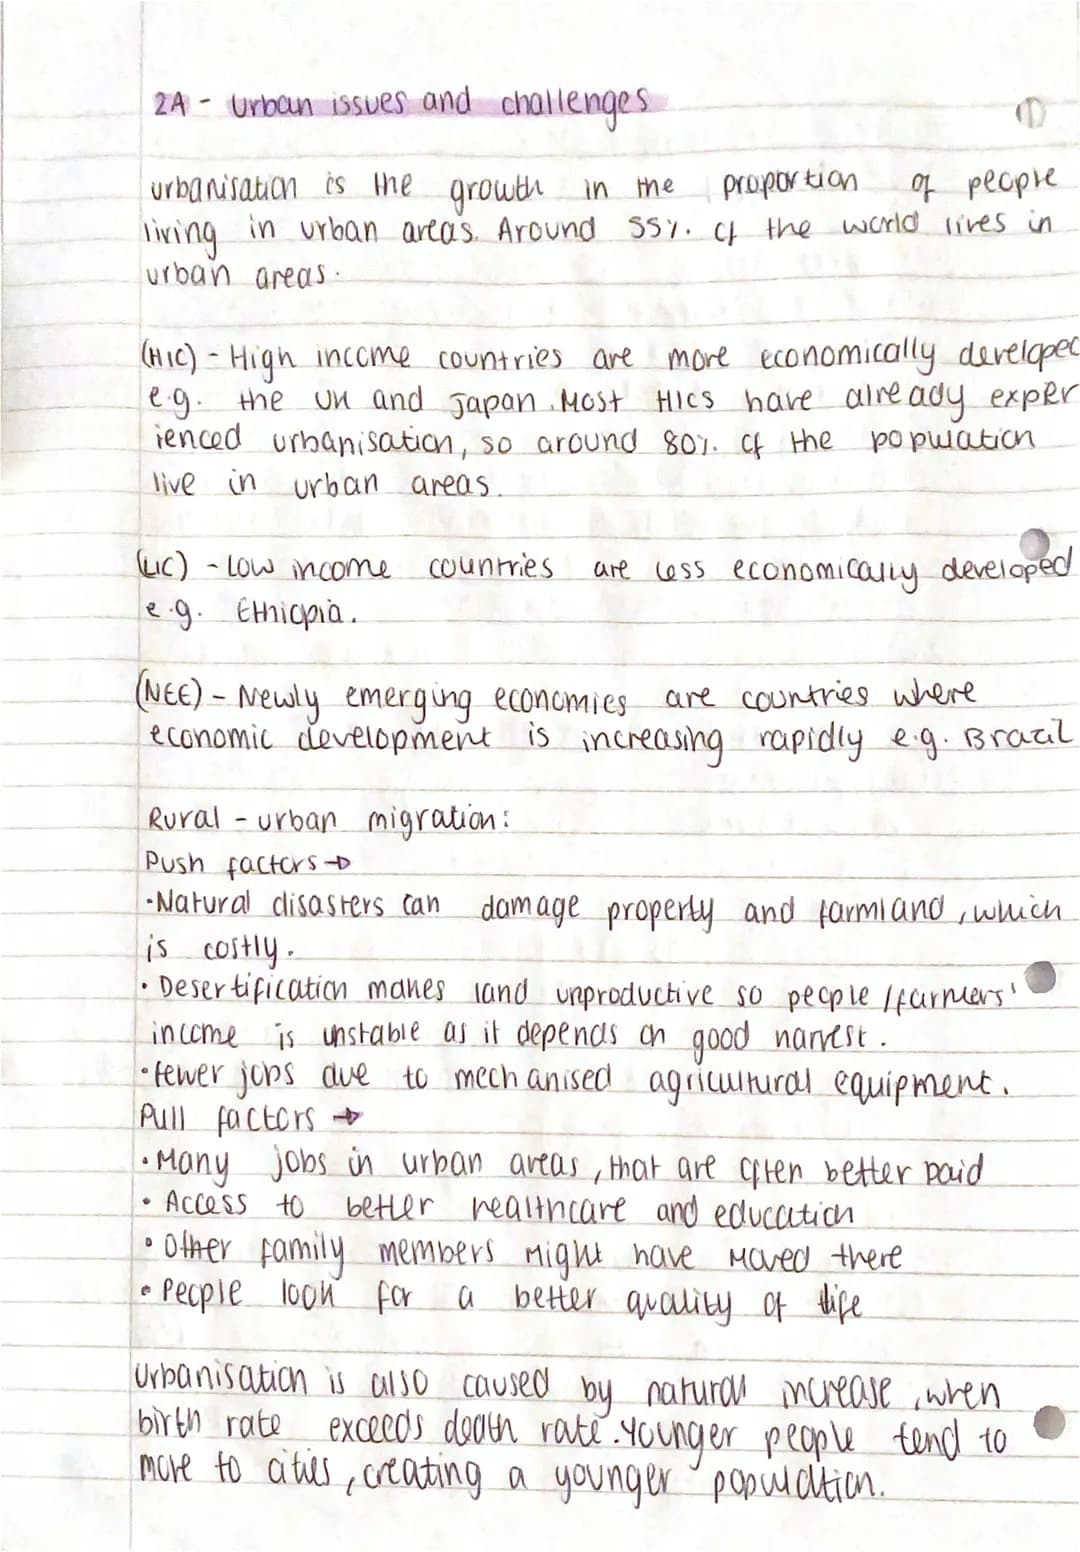 2A - Urban issues and challenges
①
urbanisation is the growth in the proportion of people
living in urban areas. Around 55%. of the world lives in
urban areas.
(HIC) - High income countries are more economically developed
e.g. the UK and Japan. Most HICs have already exper
ienced urbanisation, so around 80%. of the population
live in urban areas.
(LIC) - Low income countries are less economically developed
e.g. Ethiopia.
(NEE) - Newly emerging economies are countries where
economic development is increasing rapidly e.g. Brazil
Rural - urban migration:
Push factors →
• Natural disasters can damage property and farmland, which
is costly.
• Desertification makes land unproductive so people / farmers'
income is unstable as it depends on good harvest.
• fewer jobs due to mechanised agricultural equipment.
Pull factors →
• Many jobs in urban areas, that are often better paid
• Access to better healthcare and education
• Other family members might have moved there
• People look for a better quality of life
Urbanisation is also caused by natural increase, when
birth rate exceeds death rate. Younger people tend to
move to cities, creating a younger population.